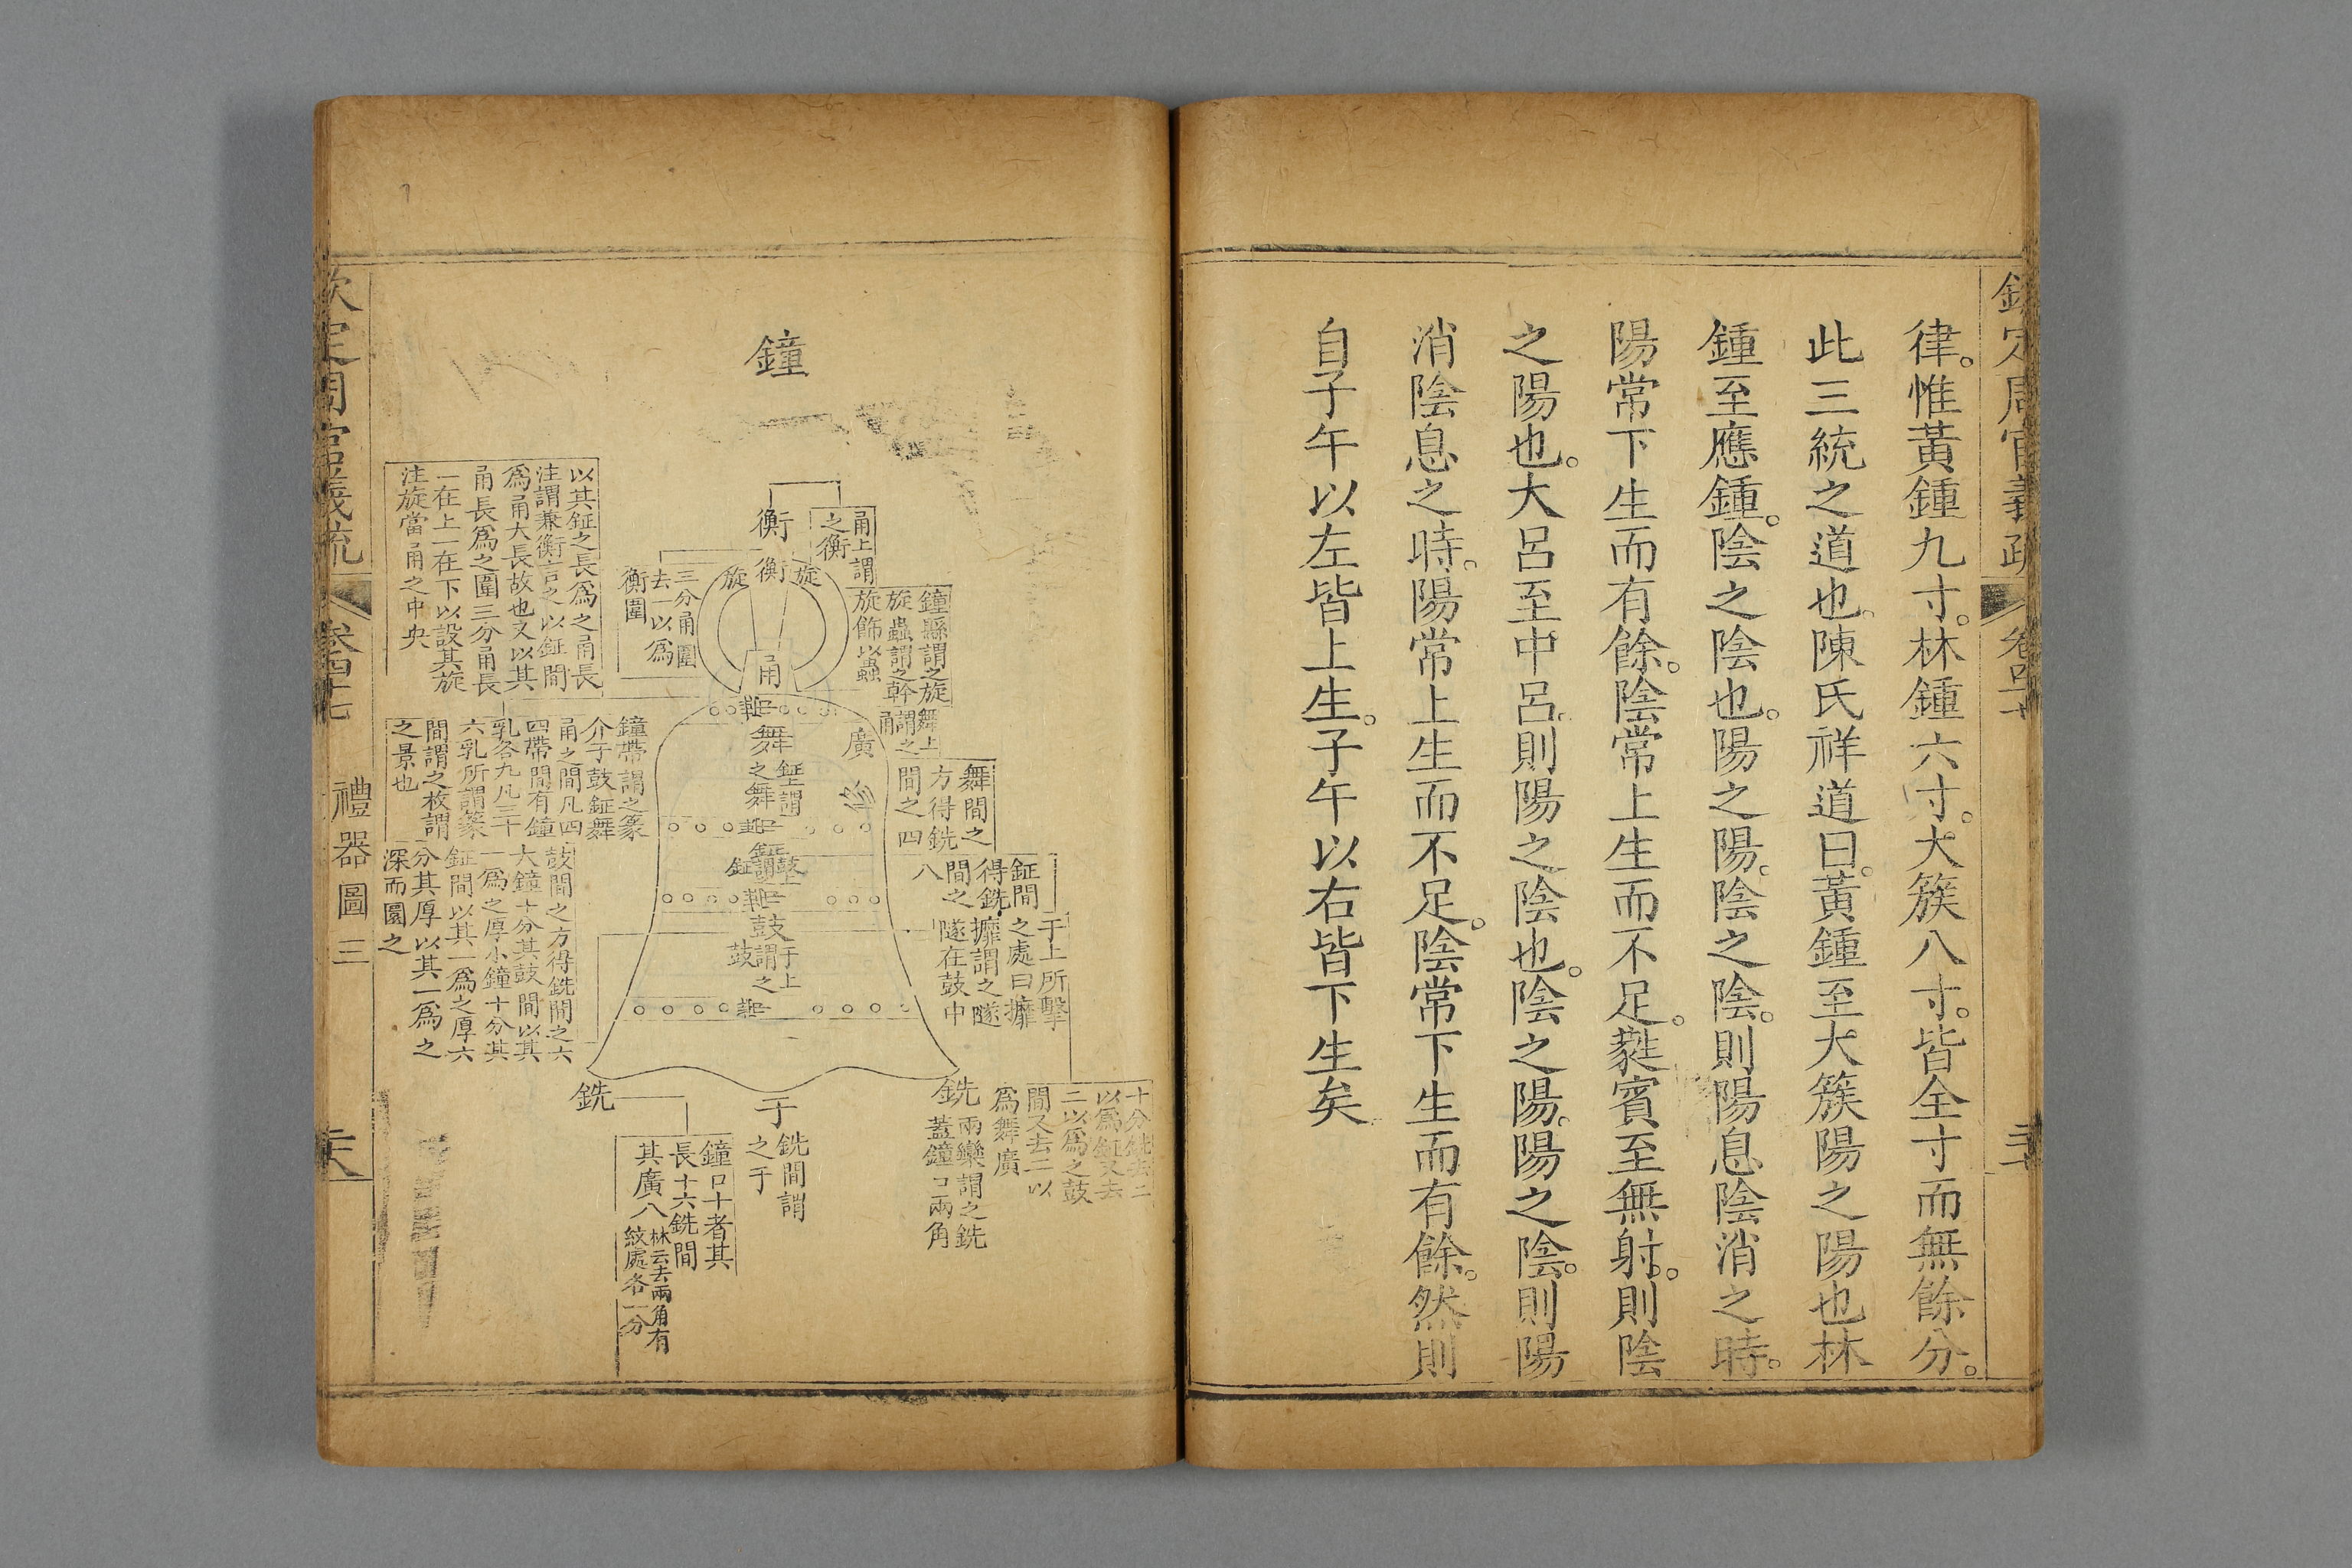 欽定周官義疏 卷四十七
律惟黃鍾九寸林鍾六寸大簇八寸皆全寸而無餘分
此三統之道也陳氏祥道曰黃鍾至大簇陽之陽也林
鍾至應鍾陰之陰也陽之陽陰之陰則陽息陰消之時
陽常下生而有餘陰常上生而不足蕤賓至無射則陰
之陽也大呂至中呂則陽之陰也陰之陽陽之陰則陽
消陰息之時陽常上生而不足陰常下生而有餘然則
自子午以左皆上生子午以右皆下生矣
鐘
衡
甬上謂
之衡
旋
衡
旋
甬
三分甬圍
去一以爲
衡圍
鐘縣謂之旋
旋蟲謂之幹
旋飾以蟲
舞上
謂之
甬
以其鉦之長爲之甬長
注謂兼衡言之以鉦間
爲甬大長故也又以其
甬長爲之圍三分甬長
一在上一在下以設其旋
注旋當甬之中央
篆
舞
鉦上謂
之舞
廣
修
舞間之
方得銑
間之四
鐘帶謂之篆
介于鼓鉦舞
甬之間凡四
四帶間有鐘
乳各九凡三十
六乳所謂篆
間謂之枚謂
之景也
篆
鉦
鼓上
謂之
鉦
鉦間
得銑
間之
八
篆
鼓
于上
謂之
鼓
篆
于上所擊
之處曰攠
攠謂之隧
隧在鼓中
鼓間之方得銑間之六
大鐘十分其鼓間以其
一爲之厚小鐘十分其
鉦間以其一爲之厚六
分其厚以其一爲之
深而圜之
十分銑去二
以爲鉦又去
二以爲之鼓
間又去二以
爲舞廣
銑
兩欒謂之銑
蓋鐘口兩角
于
銑間謂
之于
銑
鐘口十者其
長十六銑間
其廣八
林云去兩角有
紋處各一分
欽定周官義疏 卷四十七 禮器圖三